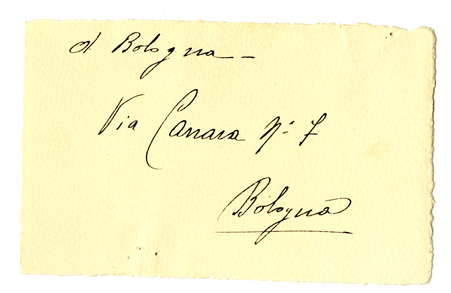 A Bologna -
Via Carrara N.º 7
Bologna